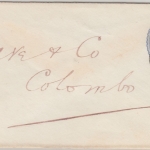 & Co
Colombo